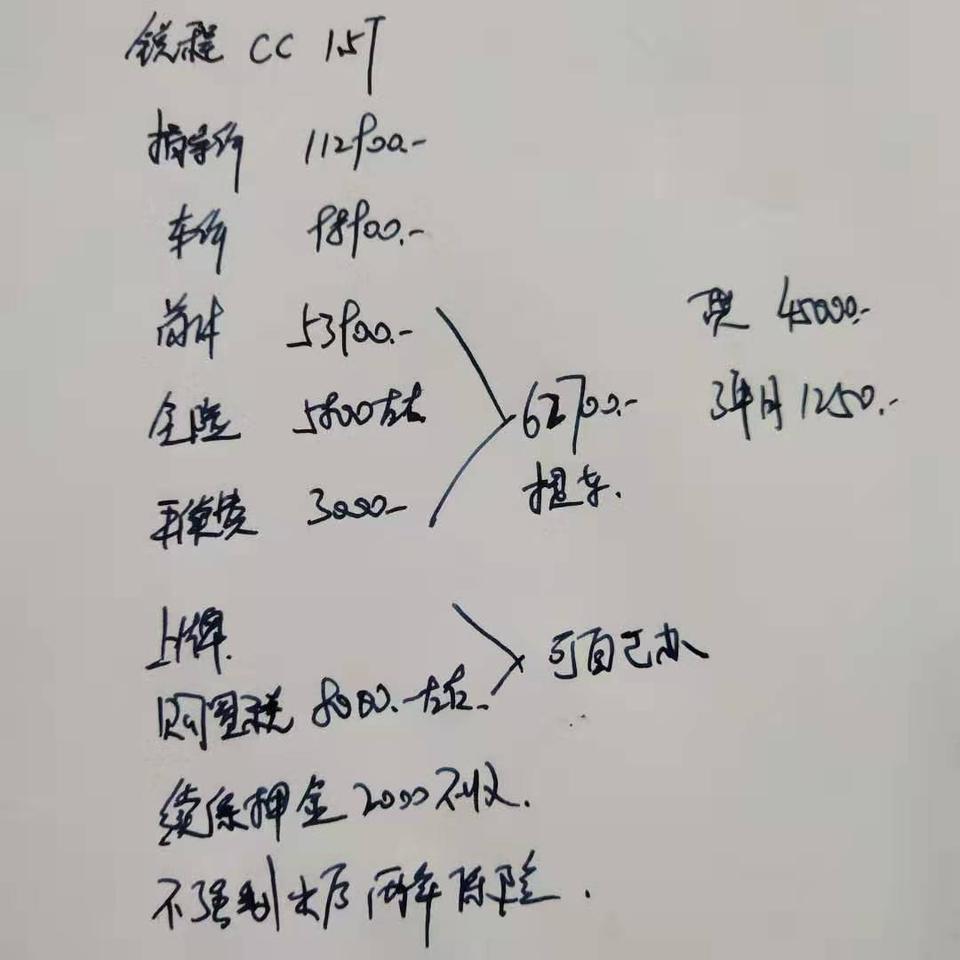 锐程 CC 1.5T
指导价 112900.-
车价 98900.-
首付 53900.-
全险 5800左右
手续费 3000-
62700.-
提车.
贷 45000.-
3年月1250.-
上牌.
购置税 8000.-左右.
可自己办
续保押金2000不收.
不强制 后两年保险.